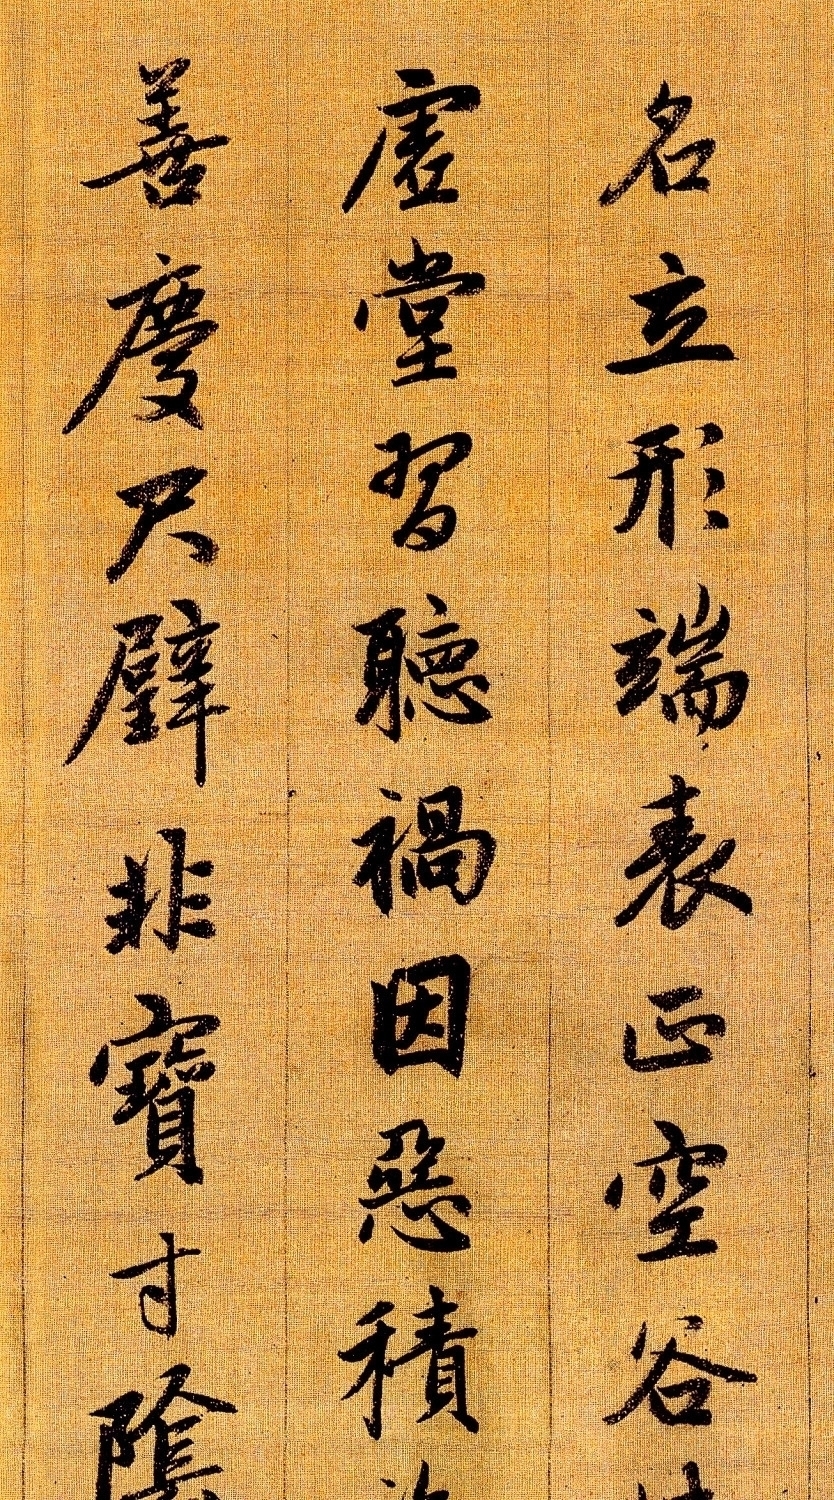 名立形端表正空谷
虛堂習聽禍因惡積
善慶尺璧非寶寸陰